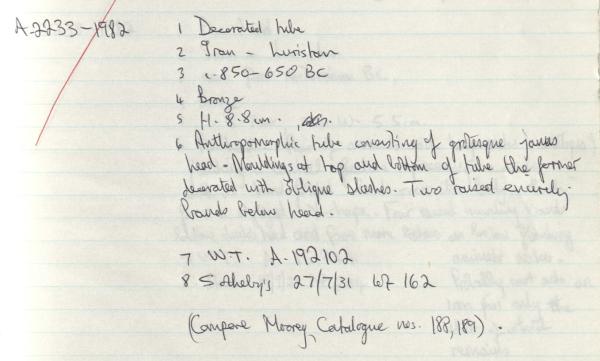 A.2233-1982 1 Decorated tube
2 Iran - Luristan
3 c.850-650 BC
4 Bronze
5 H. 8.8cm.
6 Anthropomorphic tube consisting of grotesque janus
head. Mouldings at top and bottom of tube the former
decorated with oblique slashes. Two raised
bands below head.
7 W.T. A.192102
8 Sotheby's 27/7/31 lot 162
(Compare Moorey, Catalogue nos. 188, 189).